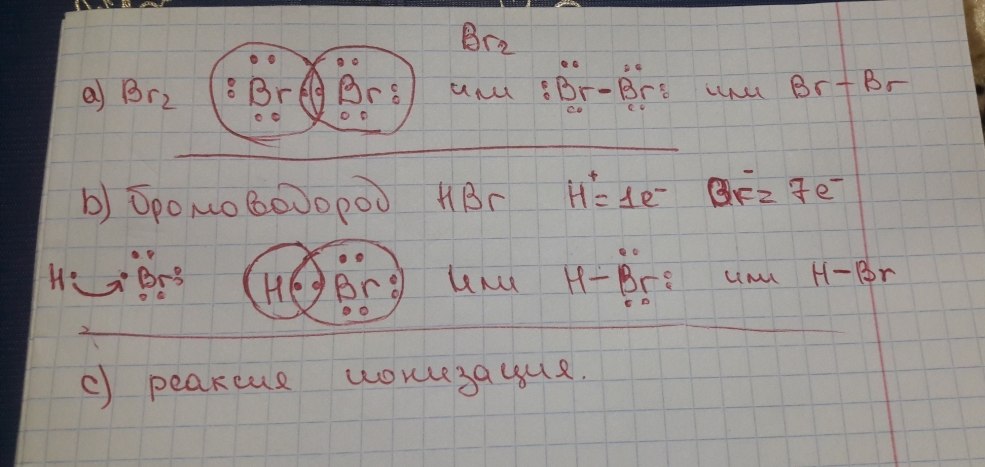 Br₂
a) Br₂ :Br::Br: или :Br-Br: или Br-Br
b) бромоводород HBr H⁺=1e⁻ Br⁻=7e⁻
H· ·Br: H:Br: или H-Br: или H-Br
c) реакция ионизация.